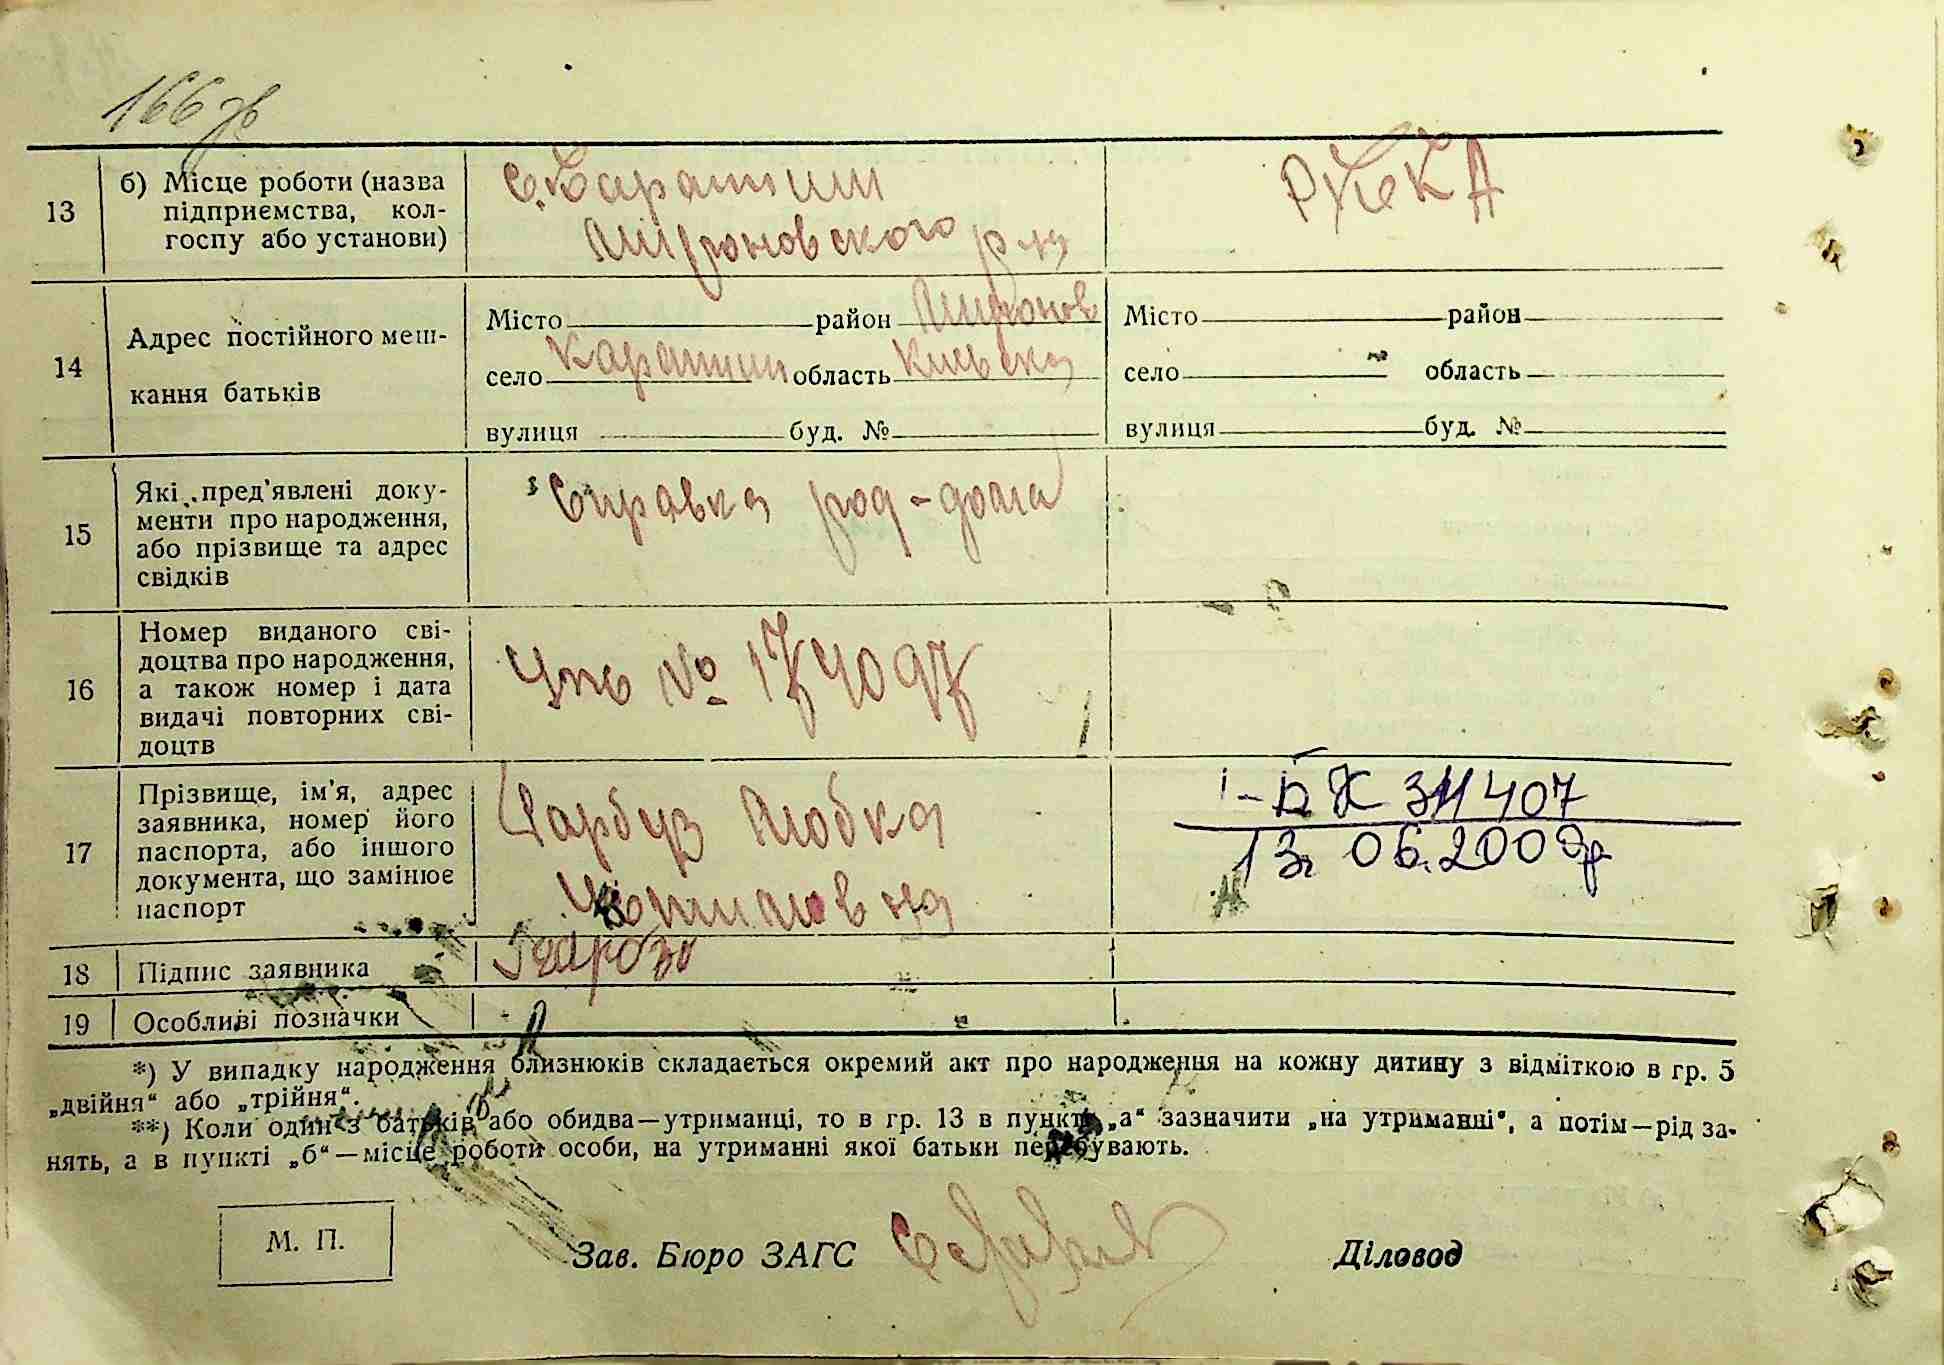 166 зв
13
б) Місце роботи (назва
підприємства, кол-
госпу або установи)
с. Карапиши
Мироновского р-на
14
Адрес постійного меш-
кання батьків
Місто район Миронов
село Карапиши область Киевска
вулиця буд. №
Місто район
село область
вулиця буд. №
15
Які пред'явлені доку-
менти про народження,
або прізвище та адрес
свідків
Справка род-дома
16
Номер виданого сві-
доцтва про народження,
а також номер і дата
видачі повторних сві-
доцтв
№ 174097
17
Прізвище, ім'я, адрес
заявника, номер його
паспорта, або іншого
документа, що замінює
паспорт
Гарбуз Любка
I-БК 311407
13. 06. 2009р
18
Підпис заявника
19
Особливі позначки
*) У випадку народження близнюків складається окремий акт про народження на кожну дитину з відміткою в гр. 5
„двійня“ або „трійня“.
**) Коли один з батьків або обидва—утриманці, то в гр. 13 в пункті „а“ зазначити „на утриманні“, а потім—рід за-
нять, а в пункті „б“—місце роботи особи, на утриманні якої батьки перебувають.
М. П.
Зав. Бюро ЗАГС
Діловод